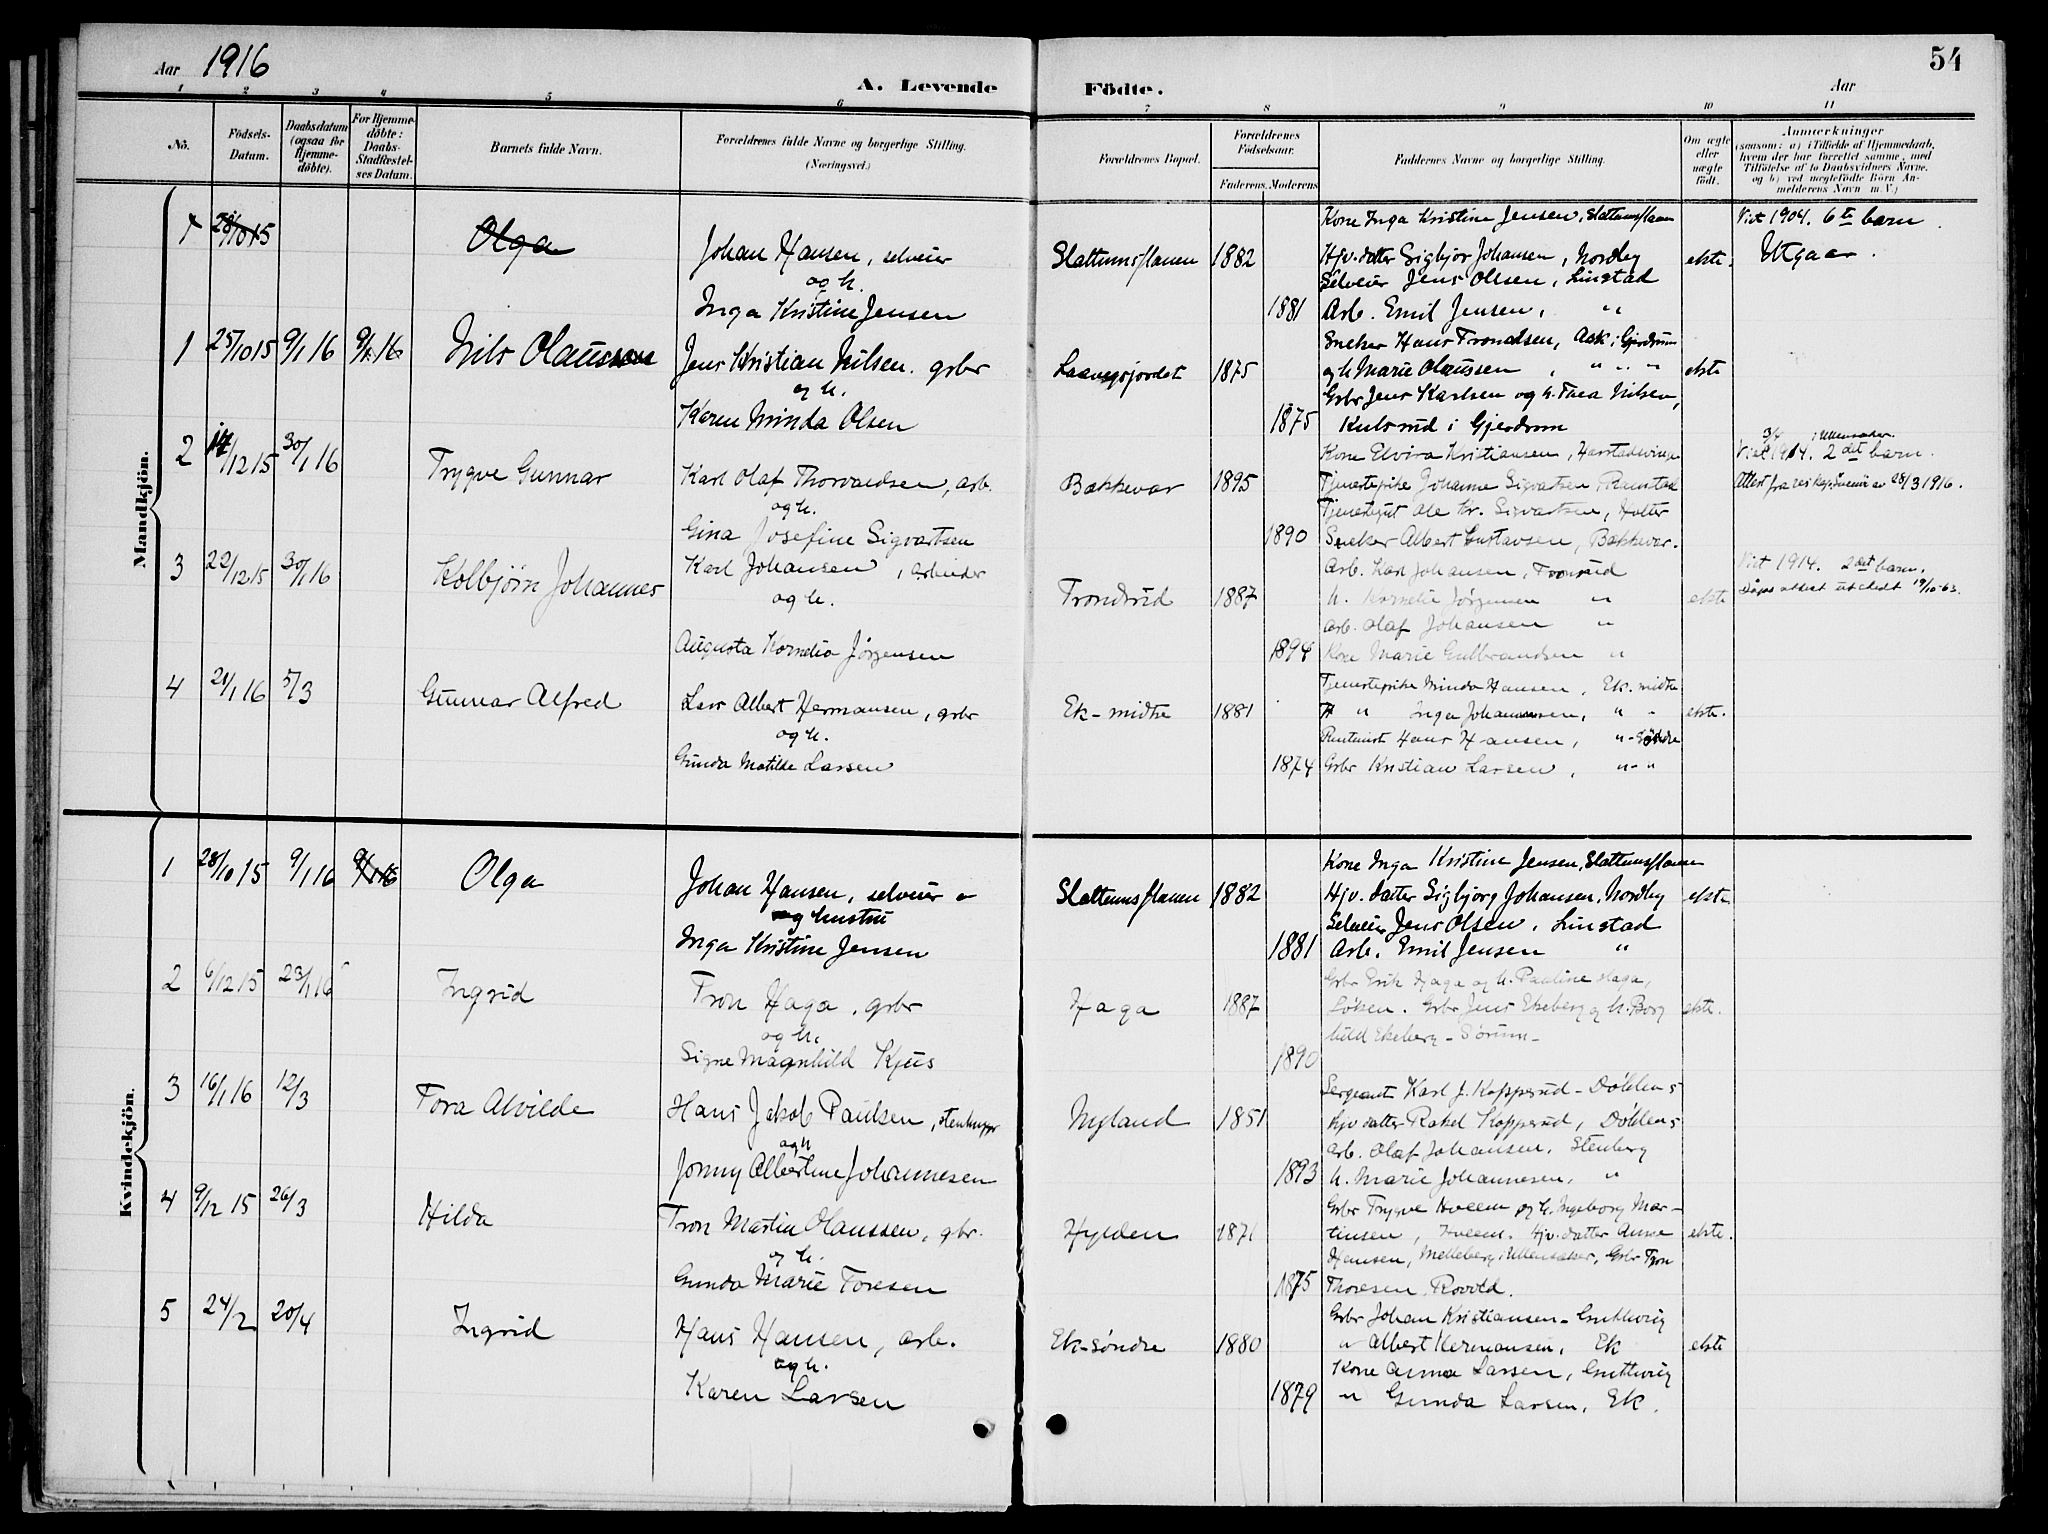 Aar 1916
A. Levende Födte.
Aar
54
1 2 3 4 5 6 7 8 9 10 11
No.
Födsels-
Datum.
Daabsdatum
(ogsaa for
Hjemme-
döbte).
For Hjemme-
döbte:
Daabs-
Stadfæstel-
ses Datum.
Barnets fulde Navn.
Forældrenes fulde Navne og borgerlige Stilling.
(Næringsvei.)
Forældrenes Bopæl.
Forældrenes
Födselsaar.
Faderens. Moderens
Faddernes Navne og borgerlige Stilling.
Om ægte
eller
uægte
födt.
Anmærkninger
(saasom: a) i Tilfælde af Hjemmedaab,
hvem der har forrettet samme, med
Tilföielse af to Daabsvidners Navne,
og b) ved uægtefödte Börn An-
melderens Navn m. V.)
Mandkjön.
1 28/10 15 Olga
Johan Hansen, selveier
og h.
Inga Kristine Jensen
Slattumsflaen 1882
1881
Kone Inga Kristine Jensen, Slattumsflaen
Hjv. datter Sigbjør Johansen, Nordby
Selveier Jens Olsen, Linstad
Arb. Emil Jensen, "
ekte.
Viet 1904. 6te barn.
Utgaar.
1 25/10 15 9/1 16 9/1 16 Nils Olaussen
Jens Kristian Nilsen. grbr
og h.
Karen Minda Olsen
1875
1875
Sneker Hans Trondsen, Ask i Gjerdrum
og h Marie Olaussen , " " "
Grbr Jens Karlsen og h. Thea Nilsen,
Kulsrud i Gjerdrum
ekte
2 14/12 15 30/1 16 Trygve Gunnar
Karl Olaf Thorvaldsen, arb.
og h.
Gina Josefine Sigvartsen
Bakkevar 1895
1890
Kone Elvira Kristiansen,
Tjenestepike Johanne Sigvartsen, Ramstad
Tjenestegut Ole Kr. Sigvartsen, Holter
Sneker Albert Gustavsen, Bakkevar.
3/4 i Ullensaker.
Viet 1914. 2det barn.
Attest fra 28/3 1916.
3 22/12 15 30/1 16 Kolbjørn Johannes
Karl Johansen, arbeider
og h.
Augusta Kornelia Jørgensen
Trondrud 1887
1894
Arb. Karl Johansen, Tronrud
h. Kornelia Jørgensen "
Arb. Olaf Johansen "
Kone Marie Gulbrandsen "
ekte
Viet 1914. 2det barn.
Dåpsattest utstedt 19/10-63.
4 21/1 16 5/3 Gunnar Alfred
Lars Albert Hermansen, grbr
og h.
Gunda Matilde Larsen
Ek-midtre 1881
1874
Tjenestepike Minda Hansen, Ek. midtre
" Inga Johannessen, " -
Rentenist Hans Hansen, "-søndre
Grbr Kristian Larsen, "-"
ekte.
Kvindekjön.
1 28/10 15 9/1 16 9/1 16 Olga
Johan Hansen, selveier
og hustru
Inga Kristine Jensen
Slattumsflaen 1882
1881
Kone Inga Kristine Jensen, Slattumsflaen
Hjv. datter Sigbjørg Johansen, Nordby
Selveier Jens Olsen, Linstad
Arb. Emil Jensen "
ekte
2 6/12 15 23/1 16 Ingrid
Tron Haga, grbr
og h.
Signe Magnhild Kjus
Haga 1887
1890
Grbr Erik Haga og h. Pauline Haga,
Løken. Grbr Jens Ekeberg og h. Borg
hild Ekeberg - Sørum -
ekte.
3 16/1 16 12/3 Tora Alvilde
Hans Jakob Paulsen, stenhugger
og h
Jonny Albertine Johannesen
Nyland 1851
1893
Sergeant Karl J. Kopperud - Døhlen s
hjv datter Rakel Kopperud, Døhlen s
Arb. Olaf Johansen, Stenberg
h. Marie Johannesen, "
4 9/12 15 26/3 Hilda
Tron Martin Olaussen, gbr.
og h.
Gunda Marie Toresen
Hylden 1871
1875
Grbr Trygve Hveem og h. Ingeborg Mar-
tinsen, Hveem. Hjv. datter Anne
Hansen, Melleberg i Ullensaker, Grbr Tron
Thoresen Rovold.
ekte.
5 24/2 20/4 Ingrid
Hans Hansen, arb.
og h.
Karen Larsen
Ek-søndre 1880
1879
Grbr Johan Kristiansen -
" Albert Hermansen, Ek
Kone Anna Larsen,
" Gunda Larsen, Ek.
ekte